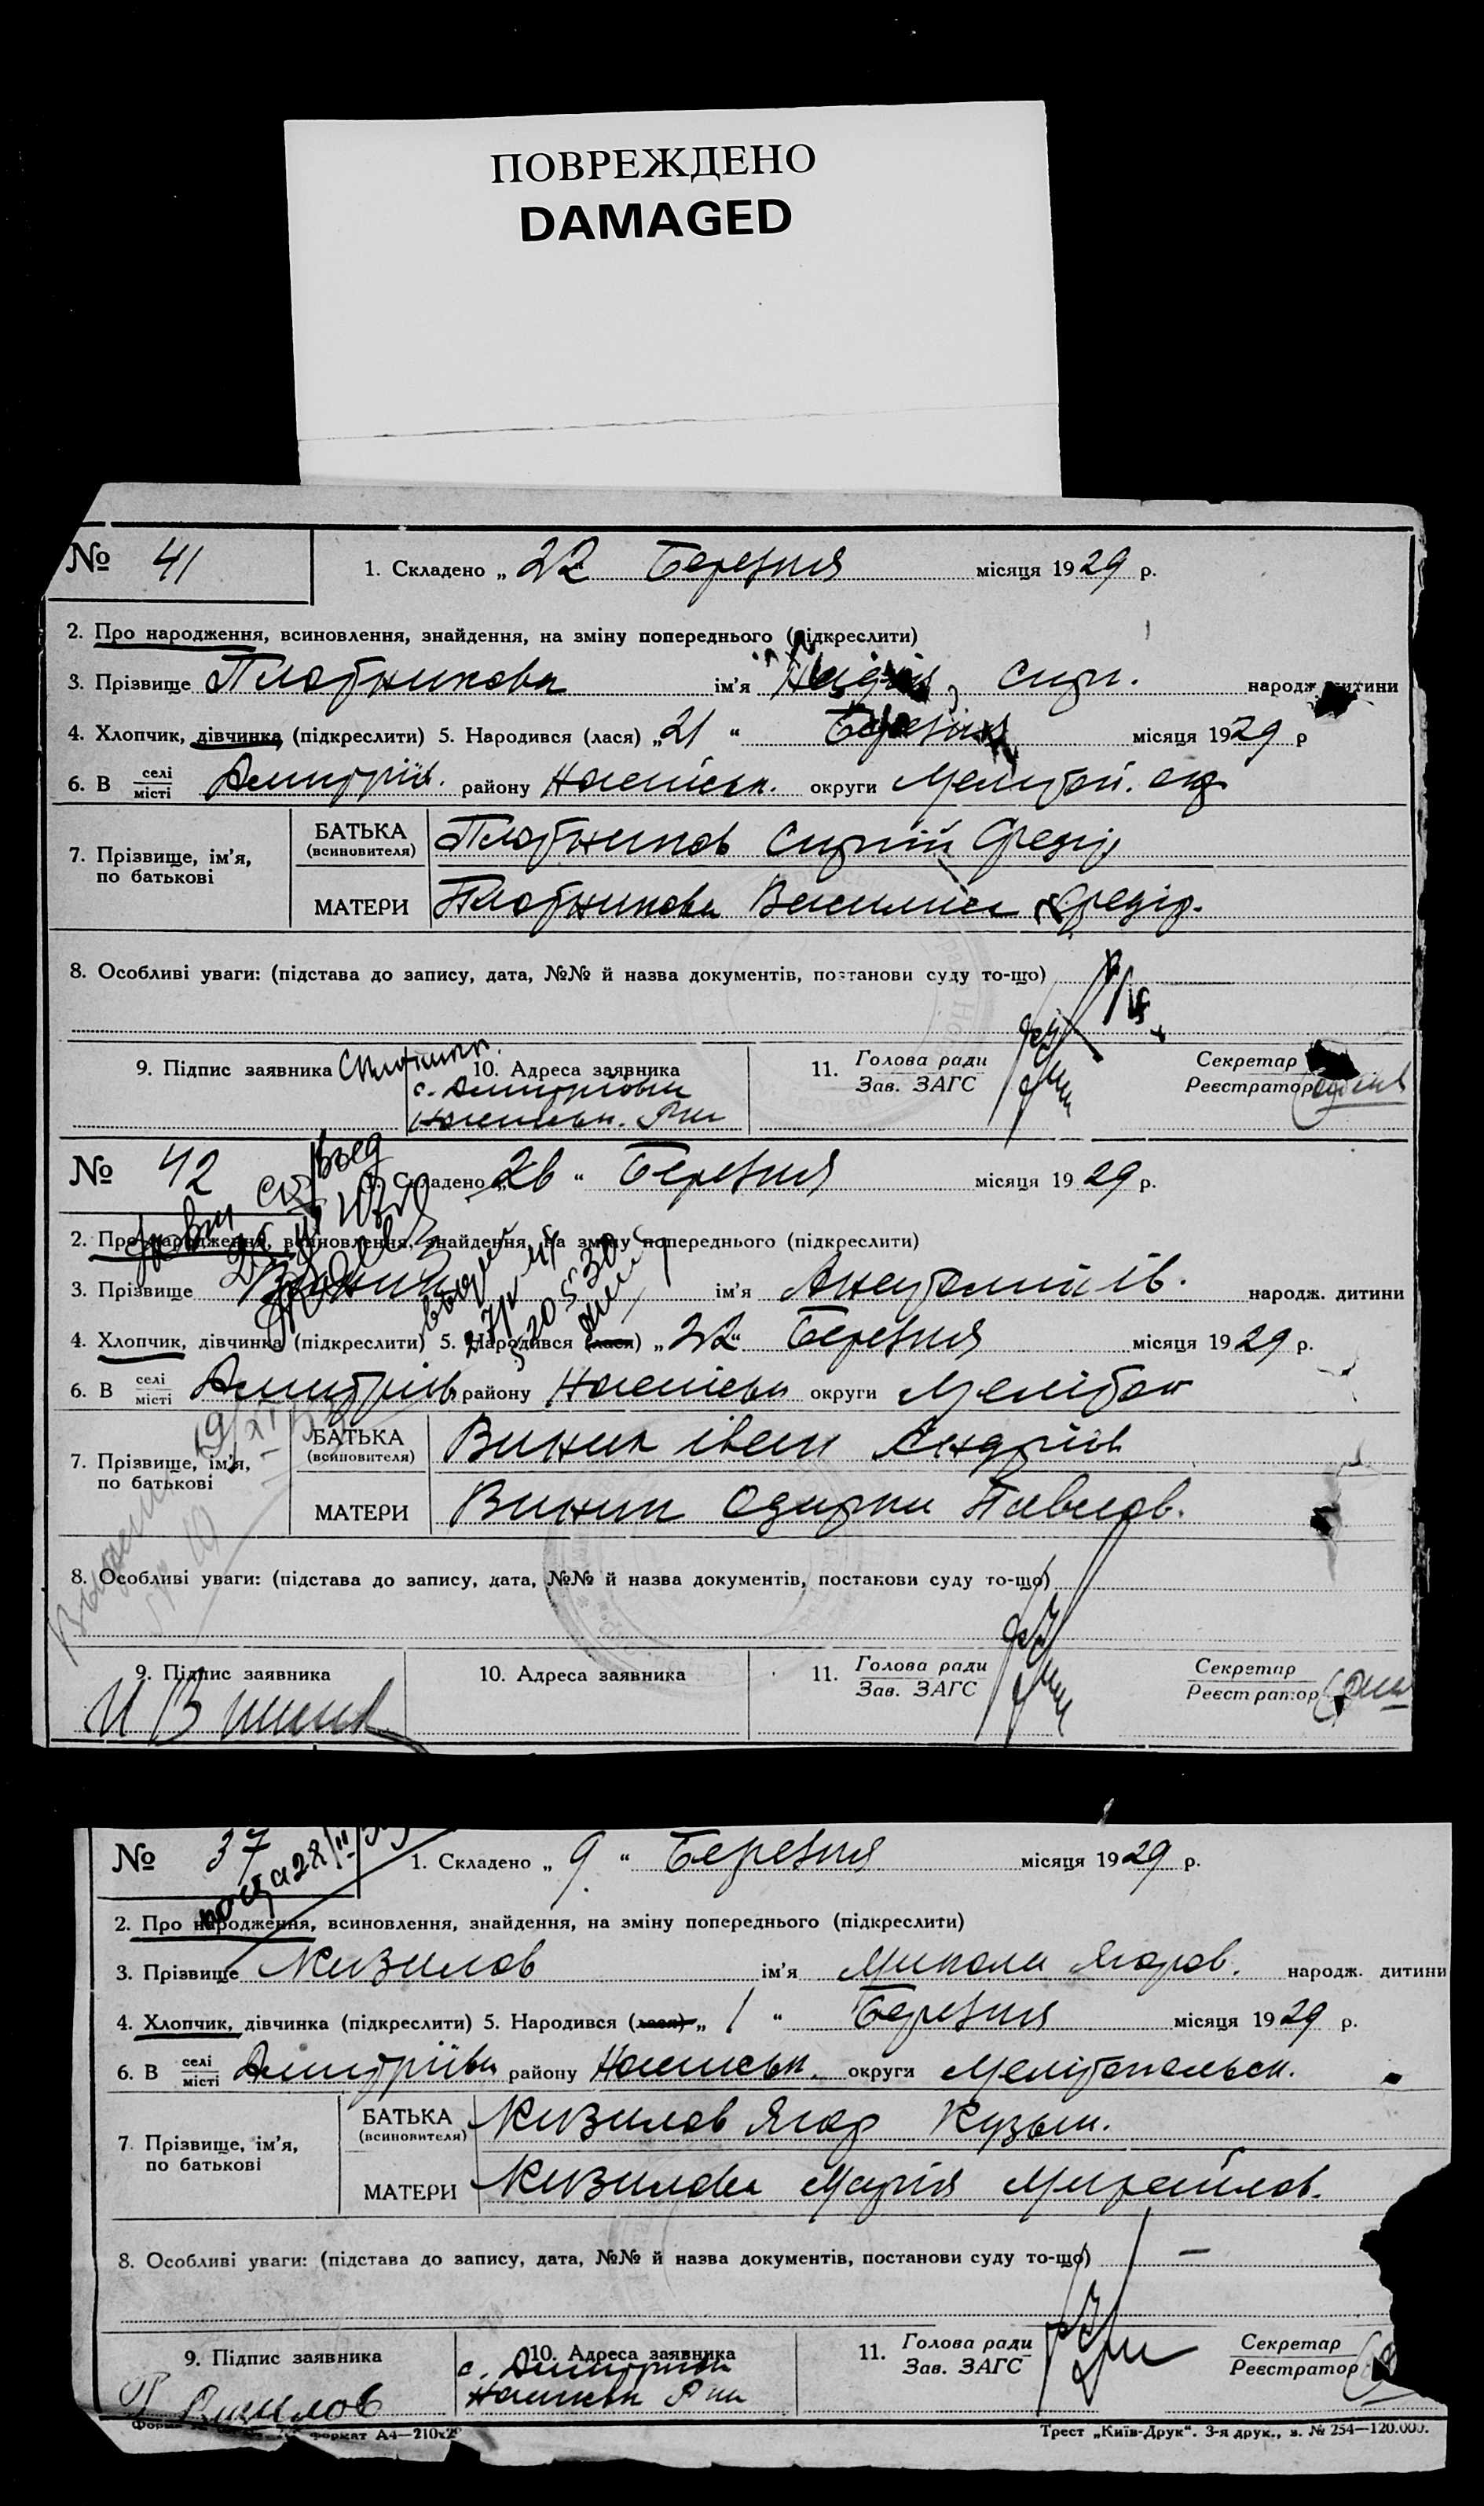 ПОВРЕЖДЕНО
DAMAGED
№ 41
1. Складено „ 22 Березня місяця 1929 р.
2. Про народження, всиновлення, знайдення, на зміну попереднього (підкреслити)
3. Прізвище Плотникова ім'я Надія, Сирг. народж. дитини
4. Хлопчик, дівчинка (підкреслити) 5. Народився (лася) „21 “ Березня місяця 1929 р
6. В селі місті Дмитрів. району округи Мелітоп. окр
7. Прізвище, ім'я, по батькові
БАТЬКА (всиновителя) Плотников Сиргій Федір
МАТЕРИ Плотникова Василиса Федір.
8. Особливі уваги: (підстава до запису, дата, №№ й назва документів, постанови суду то-що)
9. Підпис заявника
10. Адреса заявника
с. Дмитрівка
11. Голова ради Зав. ЗАГС
Секретар Реєстратор
№ 42
1. Складено „26 “ Березня місяця 1929 р.
2. Про народження, всиновлення, знайдення, на зміну попереднього (підкреслити)
3. Прізвище Виник ім'я Анатолий Ів. народж. дитини
4. Хлопчик, дівчинка (підкреслити) 5. Народився (лася) „22“ Березня місяця 1929 р.
6. В селі місті Дмитрів району округи Мелітоп
7. Прізвище, ім'я, по батькові
БАТЬКА (всиновителя) Виник Іван Андріїв
МАТЕРИ Виник Одарка Павлов.
8. Особливі уваги: (підстава до запису, дата, №№ й назва документів, постанови суду то-що)
9. Підпис заявника
10. Адреса заявника
11. Голова ради Зав. ЗАГС
Секретар Реєстратор
№ 37
1. Складено „ 9 “ Березня місяця 1929 р.
2. Про народження, всиновлення, знайдення, на зміну попереднього (підкреслити)
3. Прізвище Кизилов ім'я Микола Ягоров. народж. дитини
4. Хлопчик, дівчинка (підкреслити) 5. Народився (лася) „ 1 “ Березня місяця 1929 р.
6. В селі місті Дмитрівка району округи Мелітопольськ.
7. Прізвище, ім'я, по батькові
БАТЬКА (всиновителя) Кизилов Ягор Кузьм.
МАТЕРИ Кизилова Марія Михайлов.
8. Особливі уваги: (підстава до запису, дата, №№ й назва документів, постанови суду то-що) —
9. Підпис заявника
10. Адреса заявника
11. Голова ради Зав. ЗАГС
Секретар Реєстратор
формат А4—210х2
Трест „Київ-Друк“. 3-я друк., з. № 254—120.000.